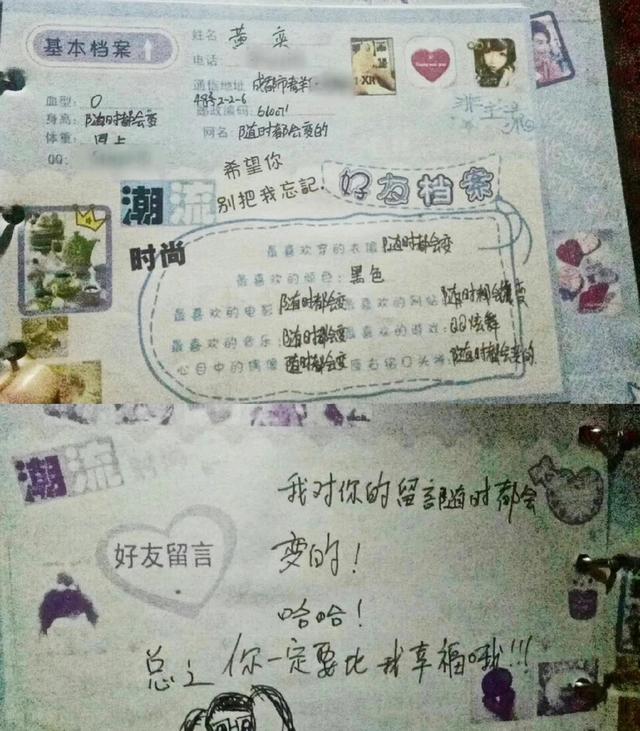 基本档案
姓名 黄奕
电话
通信地址 成都市
血型: O
48号2-2-6 邮政编码:
身高: 随时都会变
体重: 同上
网名: 随时都会变的
QQ:
非主流
希望你
别把我忘記.
潮流
好友档案
时尚
最喜欢穿的衣服 随时都会变
最喜欢的颜色: 黑色
最喜欢的电影 随时都会变 最喜欢的网站 随时都会变
最喜欢的音乐: 随时都会变 最喜欢的游戏: QQ炫舞
心目中的偶像 随时都会变 座右铭口头禅: 随时都会变的
潮流 时尚
我对你的留言随时都会
好友留言
变的!
哈哈!
总之 你一定要比我幸福哦!!!